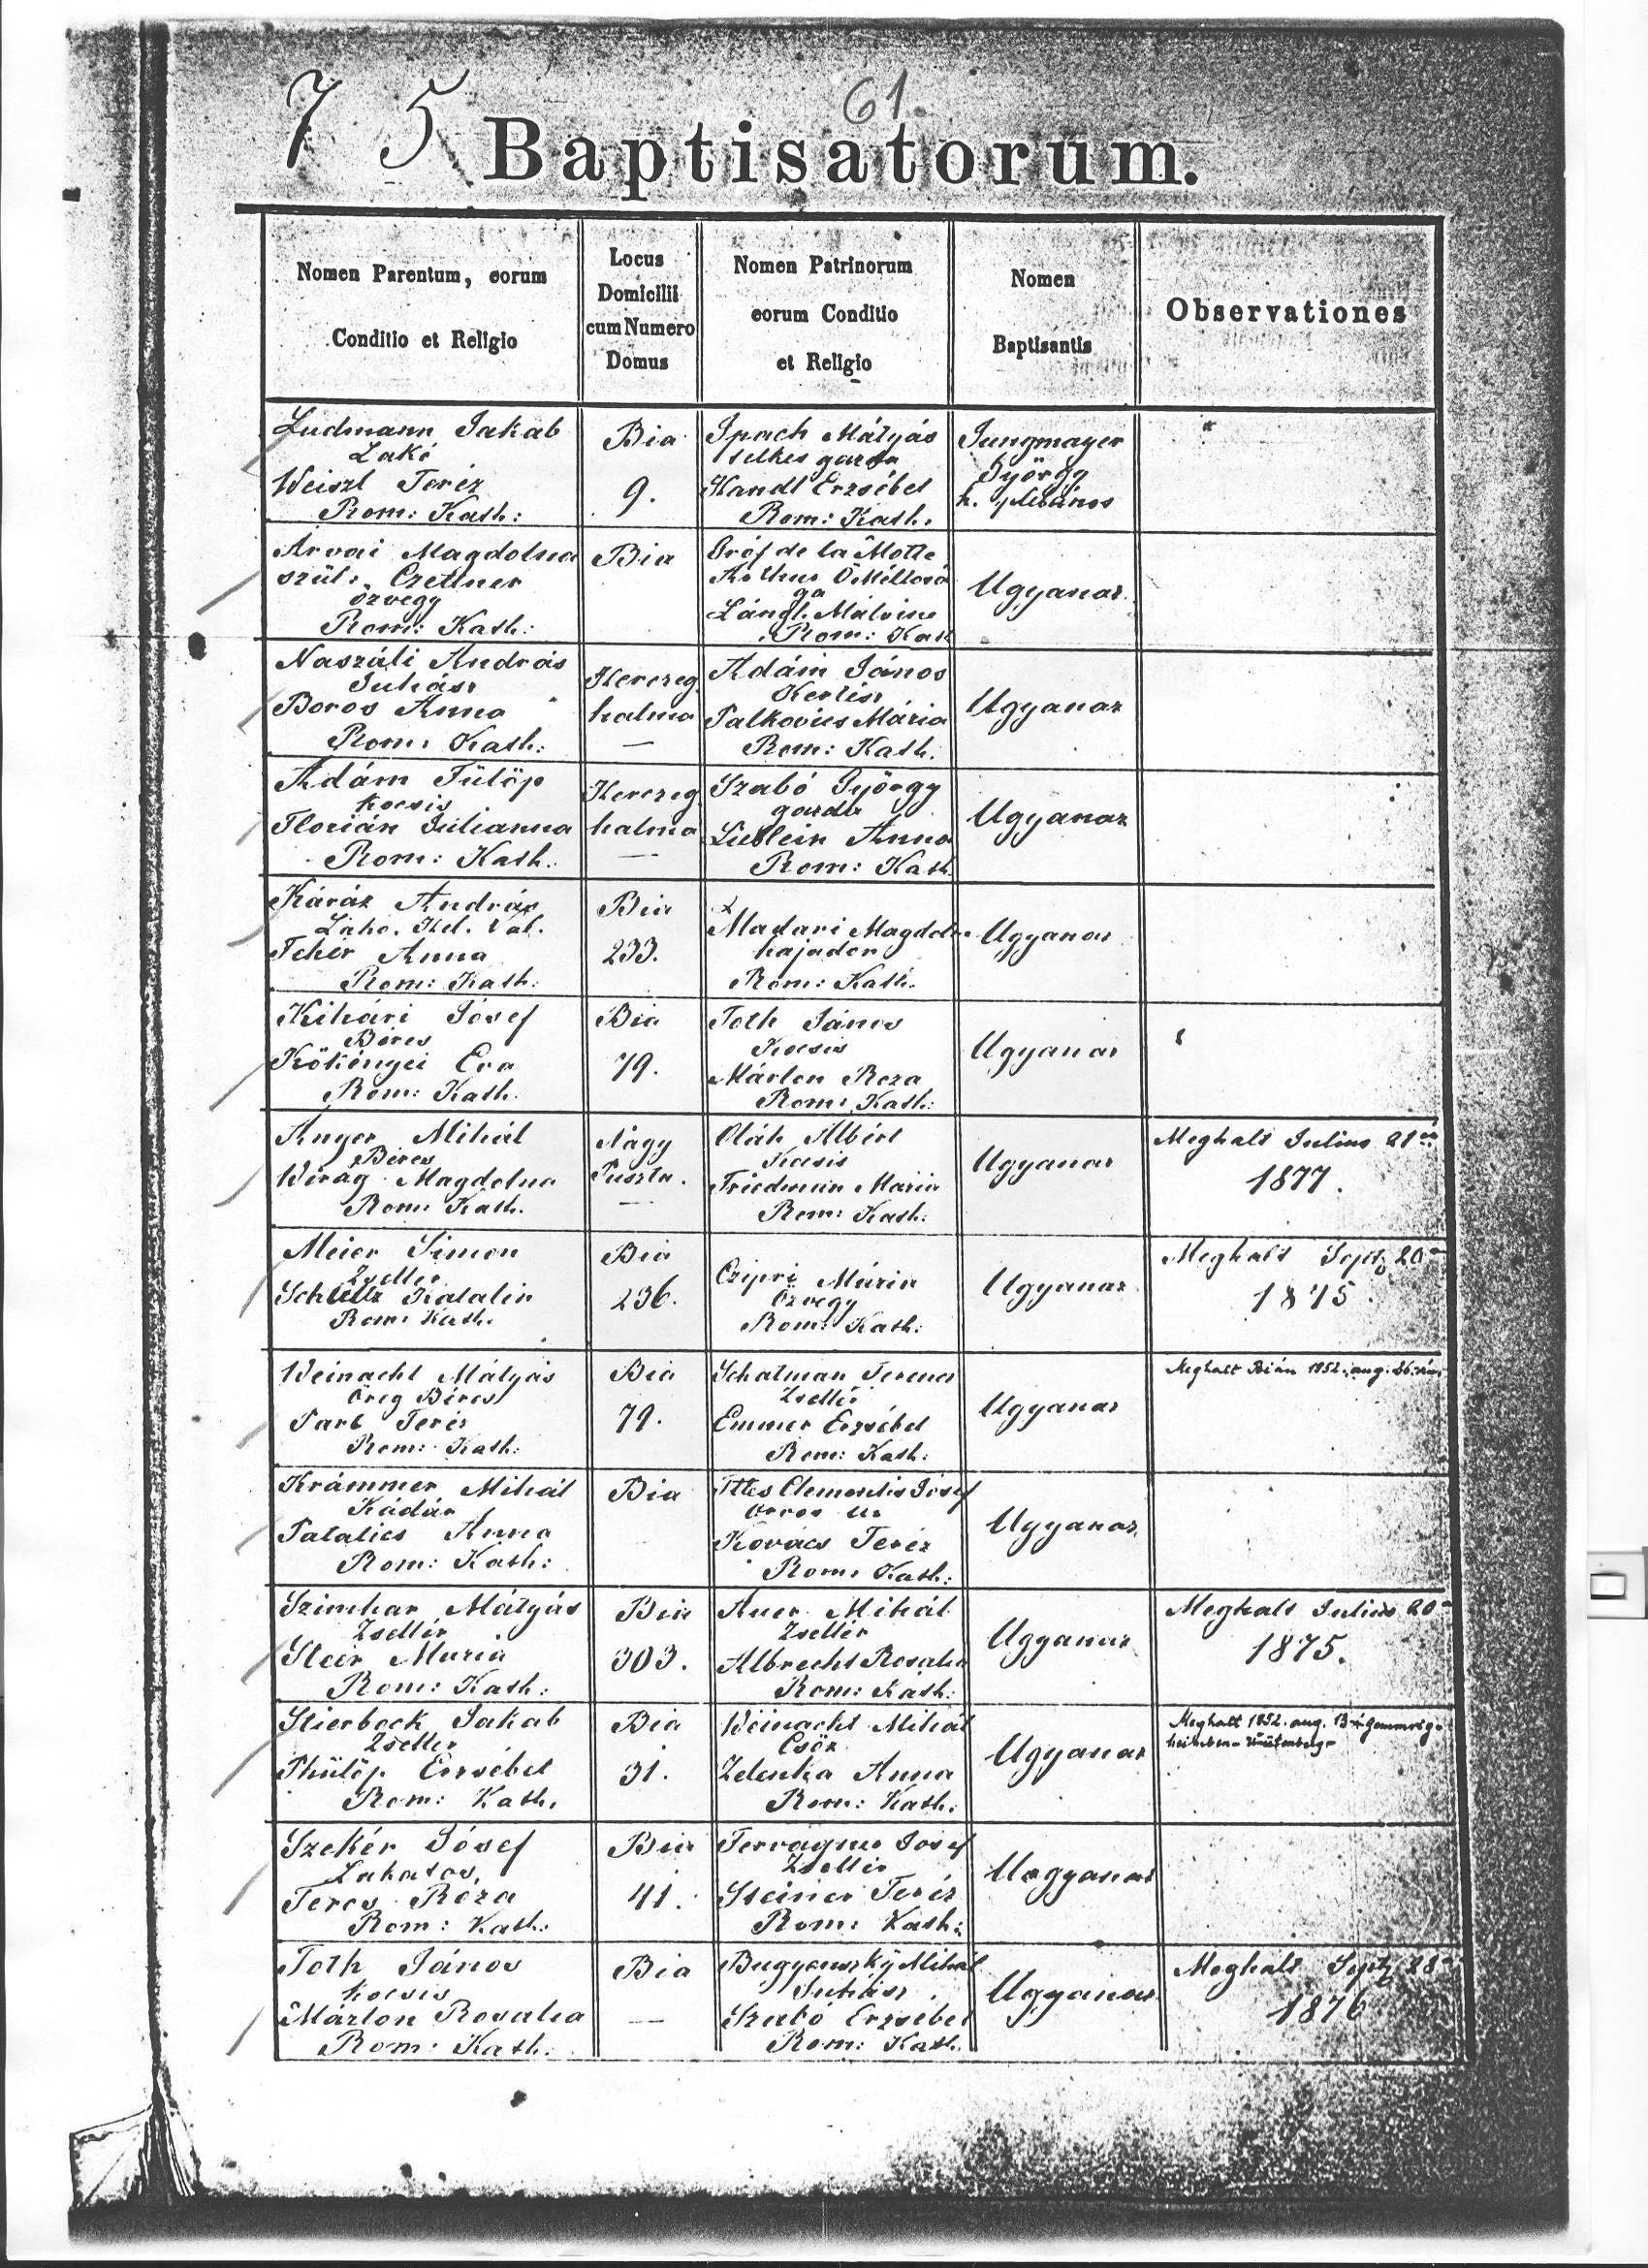 7 5
61.
Baptisatorum.
Nomen Parentum, eorum
Conditio et Religio
Locus
Domicilii
cum Numero
Domus
Nomen Patrinorum
eorum Conditio
et Religio
Nomen
Baptisantis
Observationes
Ludmann Jakab
Lakó
Weiszl Teréz
Rom: Kath:
Bia
9.
Ipach Mátyás
telkes gazda
Handl Erzsébet
Rom: Kath.
Jungmayer
György
h. plébános
Árvai Magdolna
szül. Czettner
özvegy
Rom: Kath:
Bia
Gróf de la Motte
ga
Lángl. Malvine
Rom: Kath
Ugyanaz
Naszáli András
Juhász
Boros Anna
Rom: Kath:
Herczeg
halma
—
Ádám János
Kertész
Palkovics Mária
Rom: Kath.
Ugyanaz
Ádám Fülöp
kocsis
Florián Julianna
Rom: Kath.
Herczeg
halma
—
Szabó György
gazda
Lieblein Anna
Rom: Kath.
Ugyanaz
Káráz András
Fehér Anna
Rom: Kath.
Bia
233.
Madari Magdolna
hajadon
Rom: Kath.
Ugyanaz
Kihári Jósef
Béres
Kökényei Éva
Rom: Kath.
Bia
79.
Toth János
Kocsis
Márton Roza
Rom: Kath:
Ugyanaz
Anger Mihál
Béres
Virág Magdolna
Rom: Kath.
Nagy
Puszta.
—
Oláh Albért
Kocsis
Friedman Mária
Rom: Kath:
Ugyanaz
Meghalt Julius 21én
1877.
Meier Simon
Zsellér
Katalin
Rom: Kath.
Bia
236.
Czipri Mária
Özvegy
Rom: Kath:
Ugyanaz
Meghalt Sept. 20
1875.
Weinacht Mátyás
Öreg Béres
Teréz
Rom: Kath:
Bia
79.
Schatman Ferencz
Zsellér
Emmer Erzsébet
Rom: Kath:
Ugyanaz
Meghalt Bián 1952. aug. 26.-án
Krámmer Mihál
Kádár
Patalics Anna
Rom: Kath:
Bia
Ttes Clementis Jósef
Orvos Ur
Kovács Teréz
Rom: Kath:
Ugyanaz
Szimhar Mátyás
Zsellér
Steer Maria
Rom: Kath:
Bia
303.
Auer Mihál
Zsellér
Albrecht Rosalia
Rom: Kath:
Ugyanaz
Meghalt Julius 20
1875.
Stierbock Jakab
Zsellér
Phülöp Erzsébet
Rom: Kath.
Bia
31.
Weinacht Mihál
Csősz
Zelenka Anna
Rom: Kath:
Ugyanaz
Meghalt 1952. aug. 13
Szekér Jósef
Lakatos,
Roza
Rom: Kath:
Bia
41.
Jósef
Zsellér
Steiner Teréz
Rom: Kath:
Ugyanaz
Toth János
kocsis
Márton Rosalia
Rom: Kath:
Bia
—
Bugyanszky Mihál
Juhász
Szabó Erzsébet
Rom: Kath.
Ugyanaz
Meghalt Sept. 28
1876